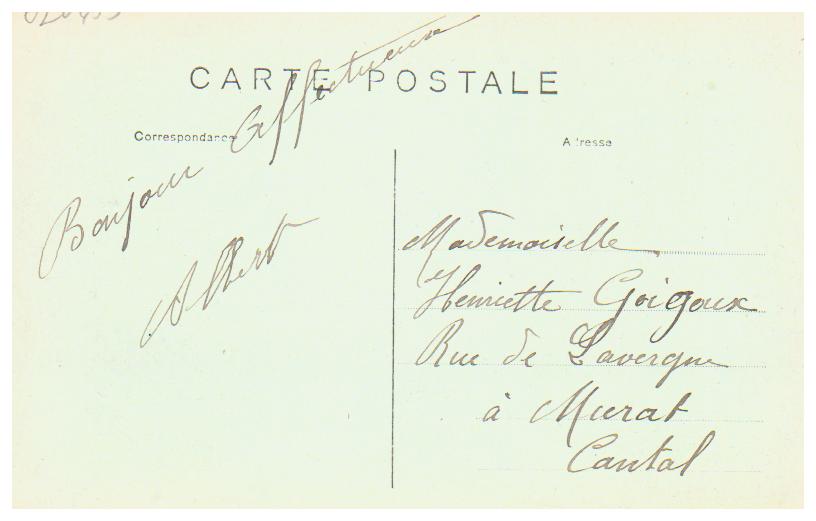 CARTE POSTALE
Correspondance
Adresse
Bonjour Affectueux
Albert
Mademoiselle
Henriette Goigoux
Rue de Lavergne
à Murat
Cantal